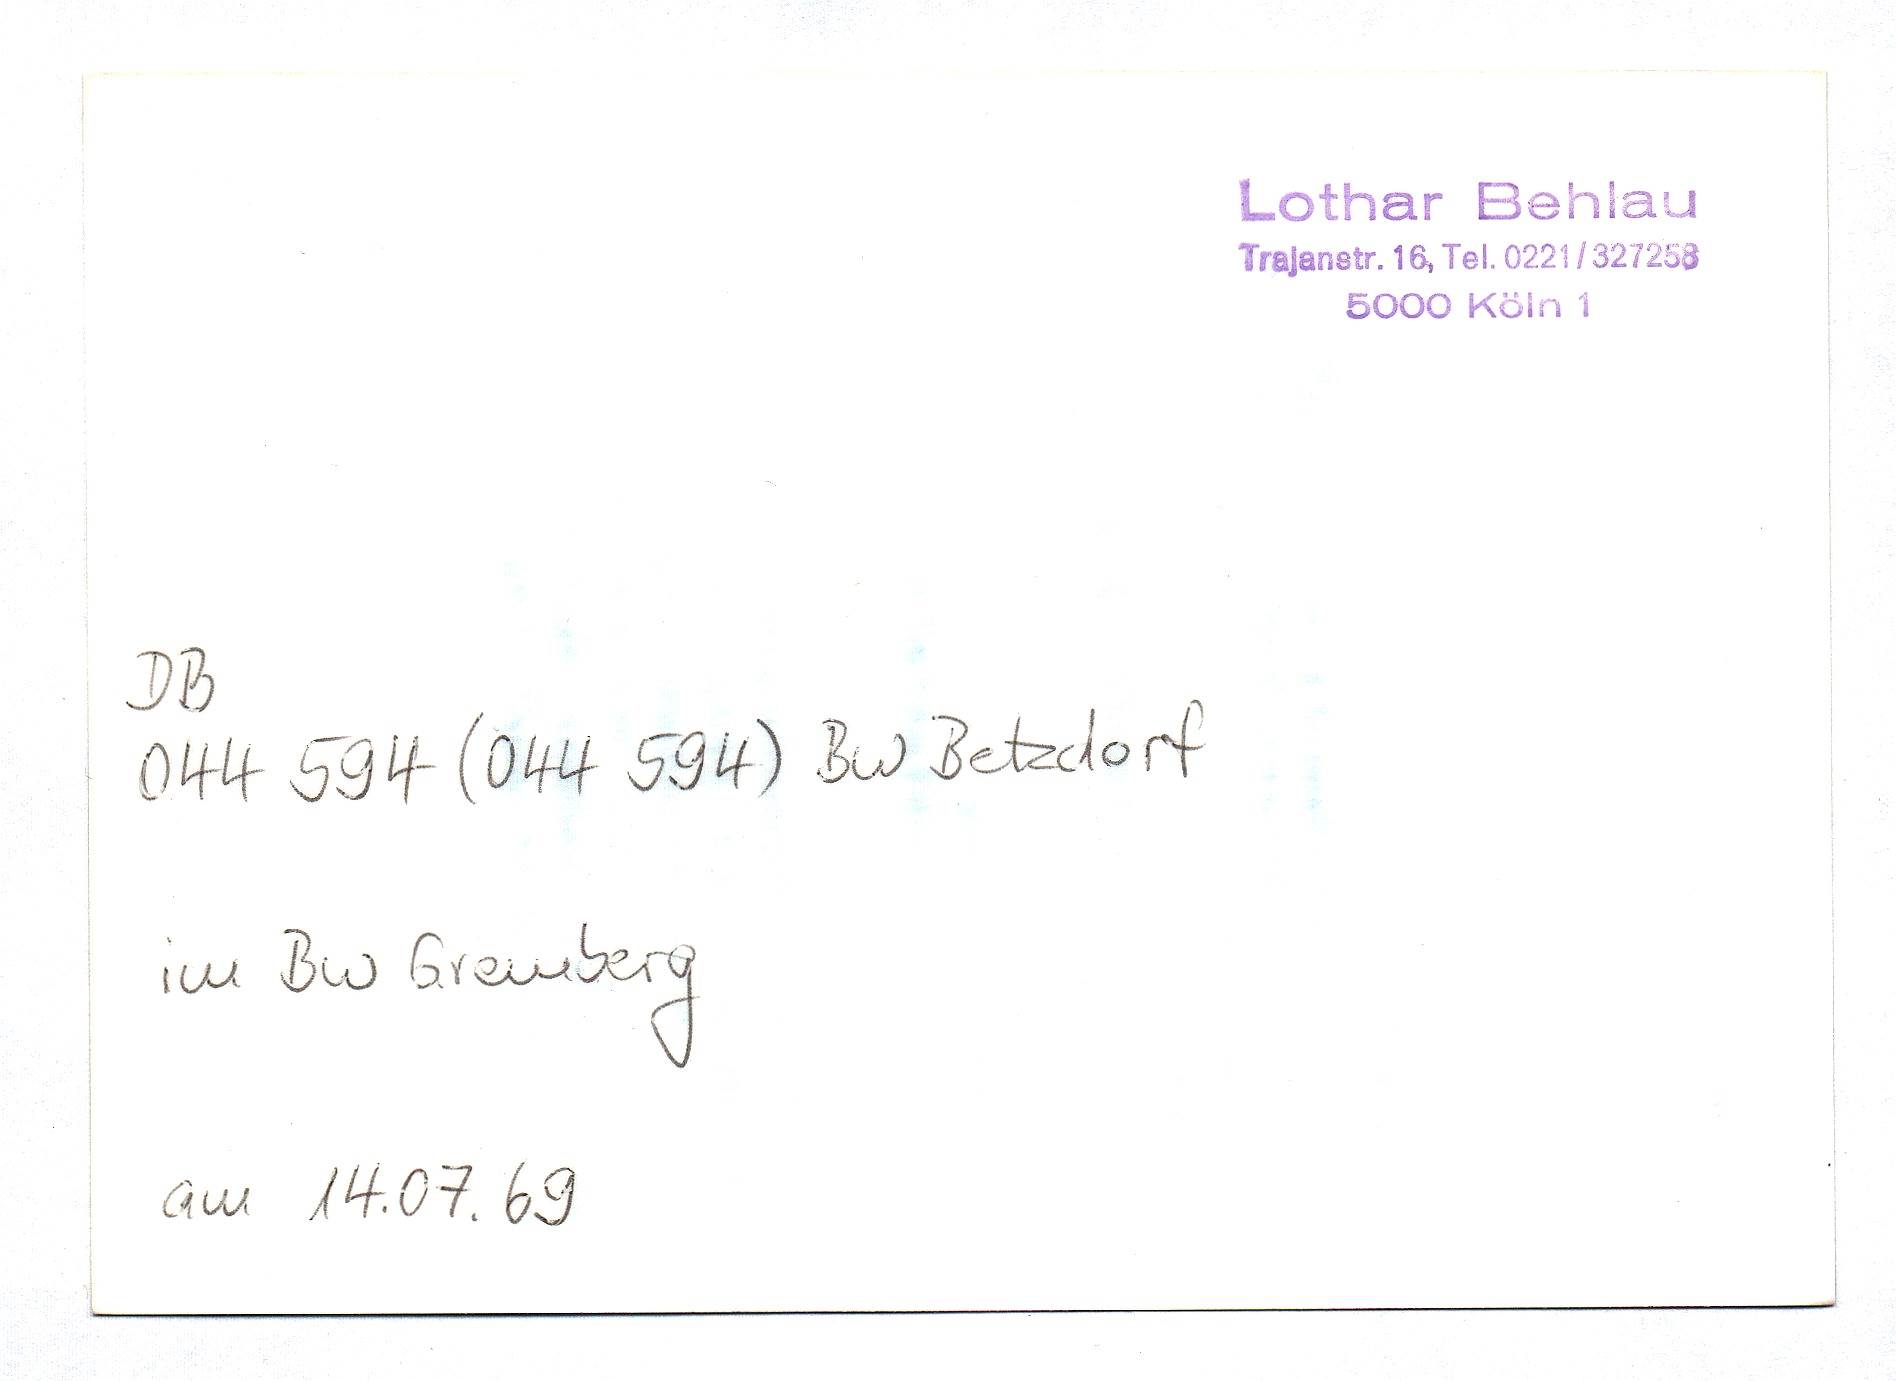 Lothar Behlau
Trajanstr. 16, Tel. 0221/327258
5000 Köln 1
DB
044 594 (044 594) Bw Betzdorf
im Bw Gremberg
am 14.07.69